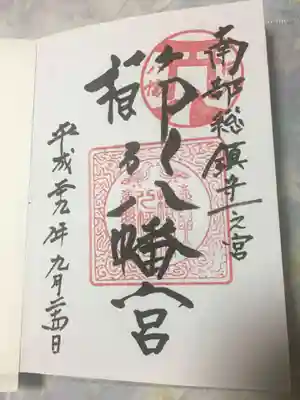 南部総鎮守一之宮
櫛引八幡宮
平成廿九年九月二四日